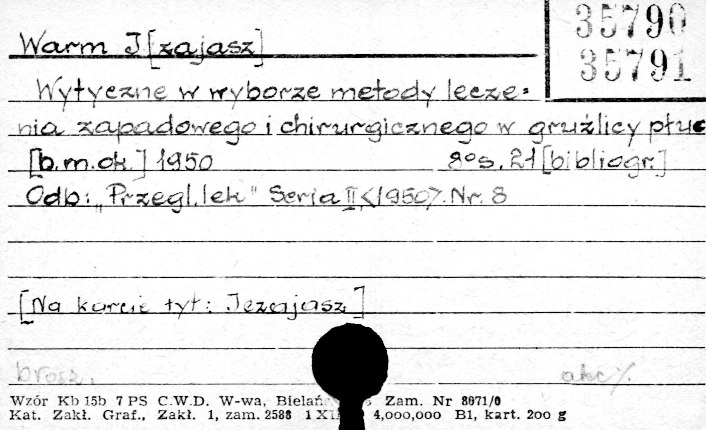 35790
35791
Warm J[zajasz]
Wytyczne w wyborze metody lecze=
nia zapadowego i chirurgicznego w gruźlicy płuc
[b.m.ok.] 1950 8° s. 21 [bibliogr.]
Odb: „Przegl. lek" Seria II, <1950>. Nr. 8
[Na karcie tyt: Jezajasz]
brosz.
akc
Wzór Kb 15b 7 PS C.W.D. W-wa, Bielań Zam. Nr 8071/0
Kat. Zakł. Graf., Zakł. 1, zam. 2588 1 XI 4,000,000 B1, kart. 200 g